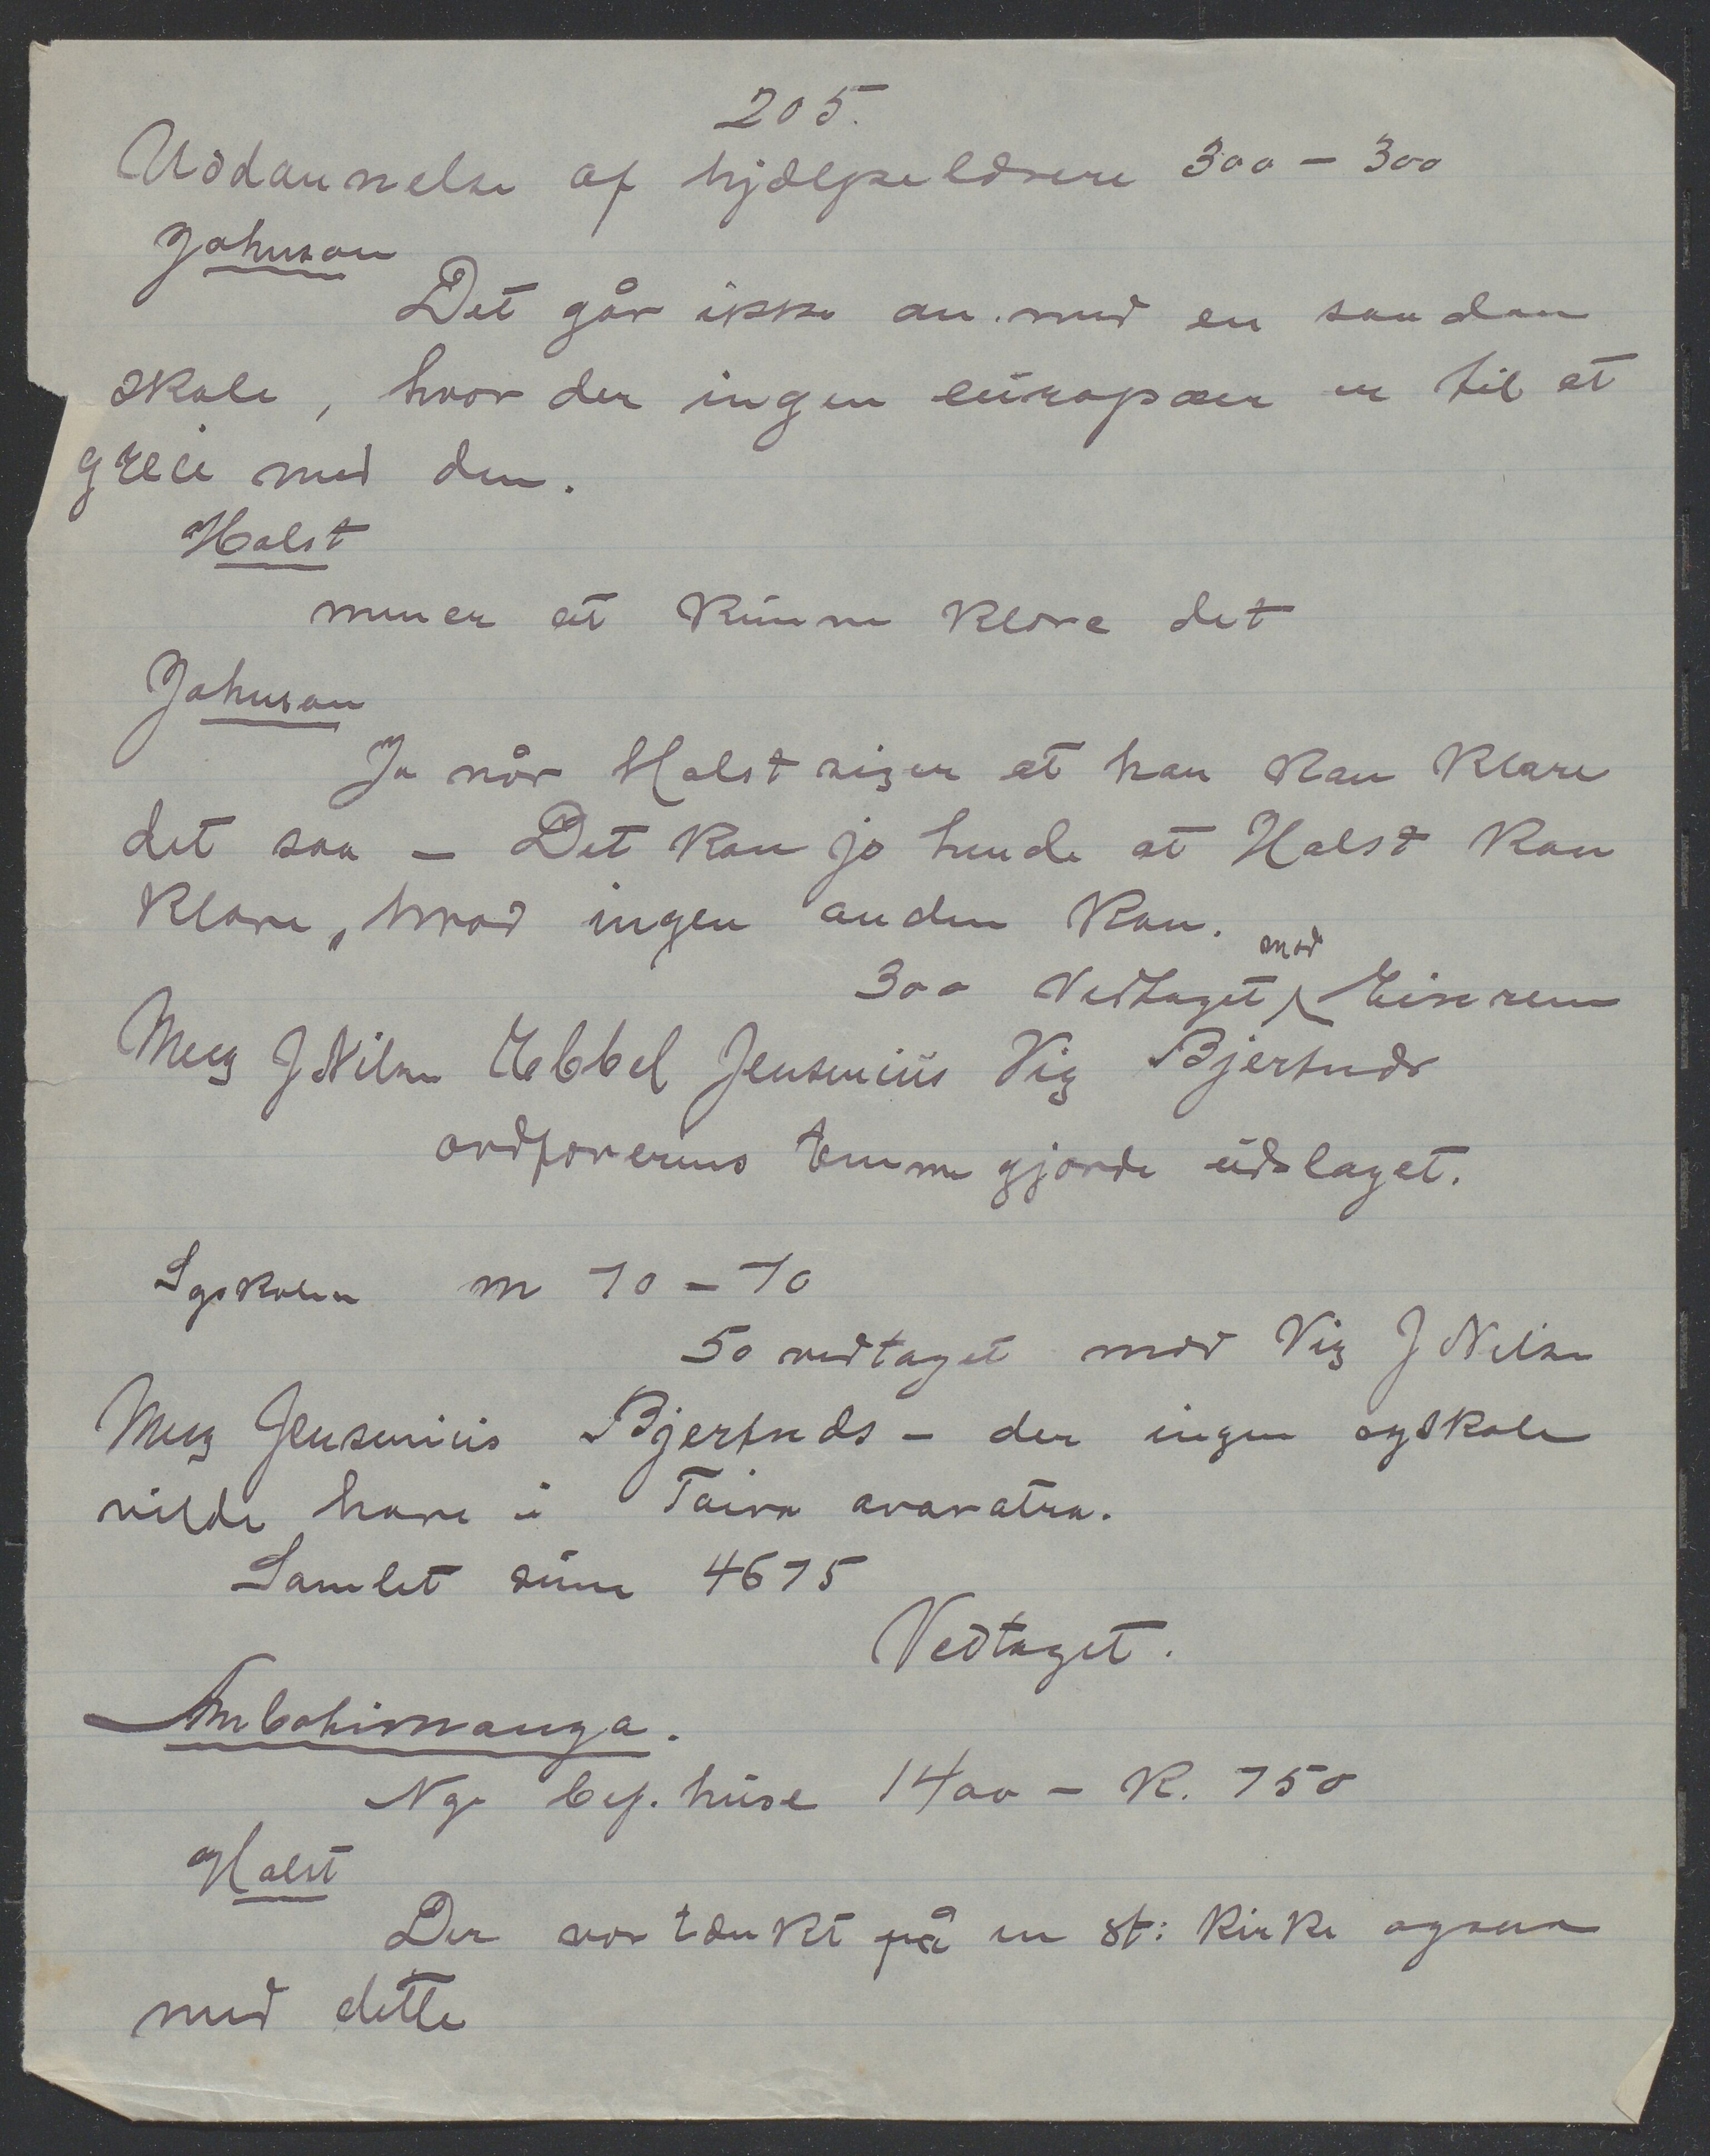 205.
Uddannelse af hjælpelærere 300 – 300
Johnson
Det går ikke an med en saadan
skole, hvor der ingen europæer er til at
greie med den.
Holst
mener at kunne klare det
Johnson
Ja når Holst siger at han kan klare
det saa – Det kan jo hende at Holst kan
klare, hvad ingen anden kan.
300 Vedtaget mod Einrem
Meeg J Nilsen Ebbel Jensenius Vig Bjertnæs
ordførerens temme gjorde udslaget.
Syskolen m 70 – 70
50 vedtaget mod Vig J Nilsen
Meeg Jensenius Bjertnæs – der ingen syskole
vilde have i Faira avaratra.
Samlet sum 4675
Vedtaget.
Ambohimanga.
Nye bef. huse 1400 – K. 750
Holst
Der var tænkt på en st: kirke ogsaa
med dette